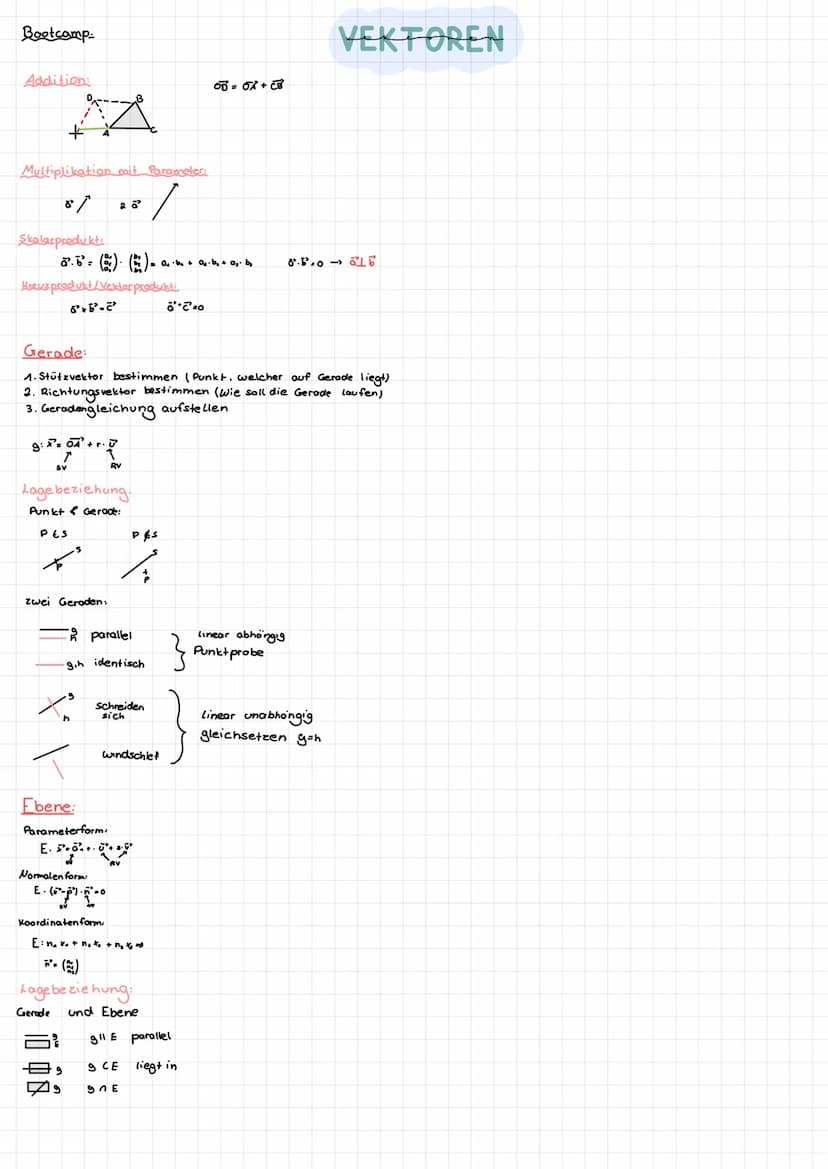 Bootcamp.
VEKTOREN
Addition:
OD = OA + CB
D B
A C
Multiplikation mit Parameter:
a 2 a
Skalarprodukt:
a · b = · = a₁·b₁ + a₂·b₂ + a₃·b₃ a·b=0 → a⊥b
Kreuzprodukt/Vektorprodukt:
a×b=c a·c=0
Gerade:
1. Stützvektor bestimmen (Punkt, welcher auf Gerade liegt)
2. Richtungsvektor bestimmen (wie soll die Gerade laufen)
3. Geradengleichung aufstellen
g: x = OA + r · U
SV RV
Lagebeziehung:
Punkt & Gerade:
P ∈ S P ∉ S
S S
P P
zwei Geraden:
g
h parallel linear abhängig
Punktprobe
g,h identisch
g schneiden
h sich
linear unabhängig
gleichsetzen g=h
windschief
Ebene:
Parameterform:
RV
Normalenform:
SV
Koordinatenform:
E: n₁ x₁ + n₂ x₂ + n₃ x₃
Lagebeziehung:
Gerade und Ebene
g
E g || E parallel
g g ⊂ E liegt in
g g ∩ E